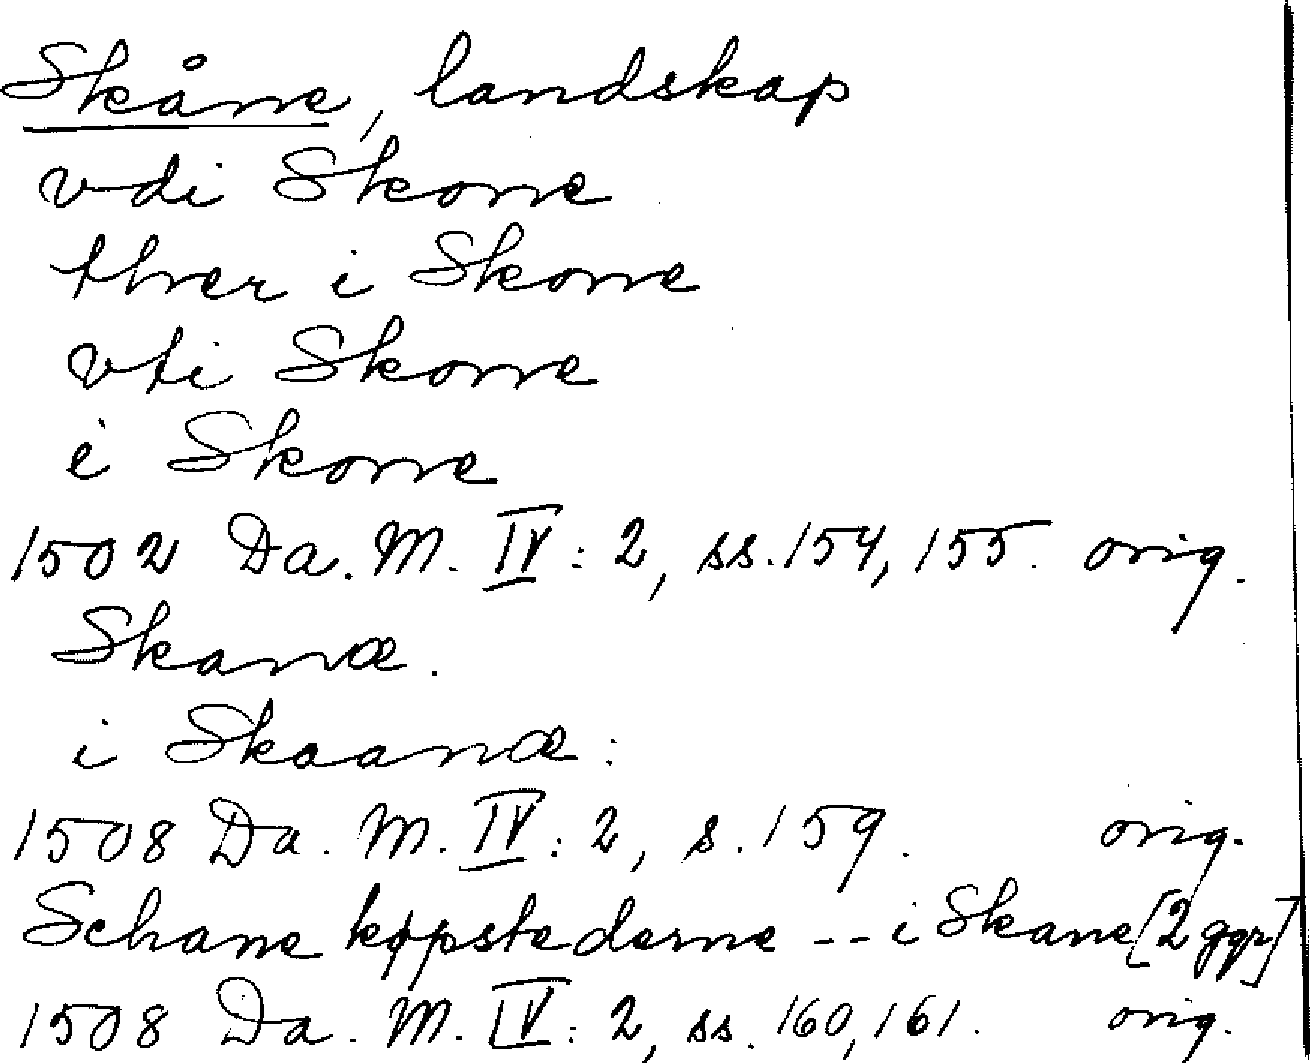 Skåne, landskap
vdi Skone
thær i Skone
vti Skone
i Skone
1502 Da. M. IV: 2, ss. 154, 155. orig.
Skanæ.
i Skaanæ:
1508 Da. M. IV: 2, s. 159. orig.
Schane køpstederne -- i Skane [2 ggr]
1508 Da. M. IV: 2, ss. 160, 161. orig.